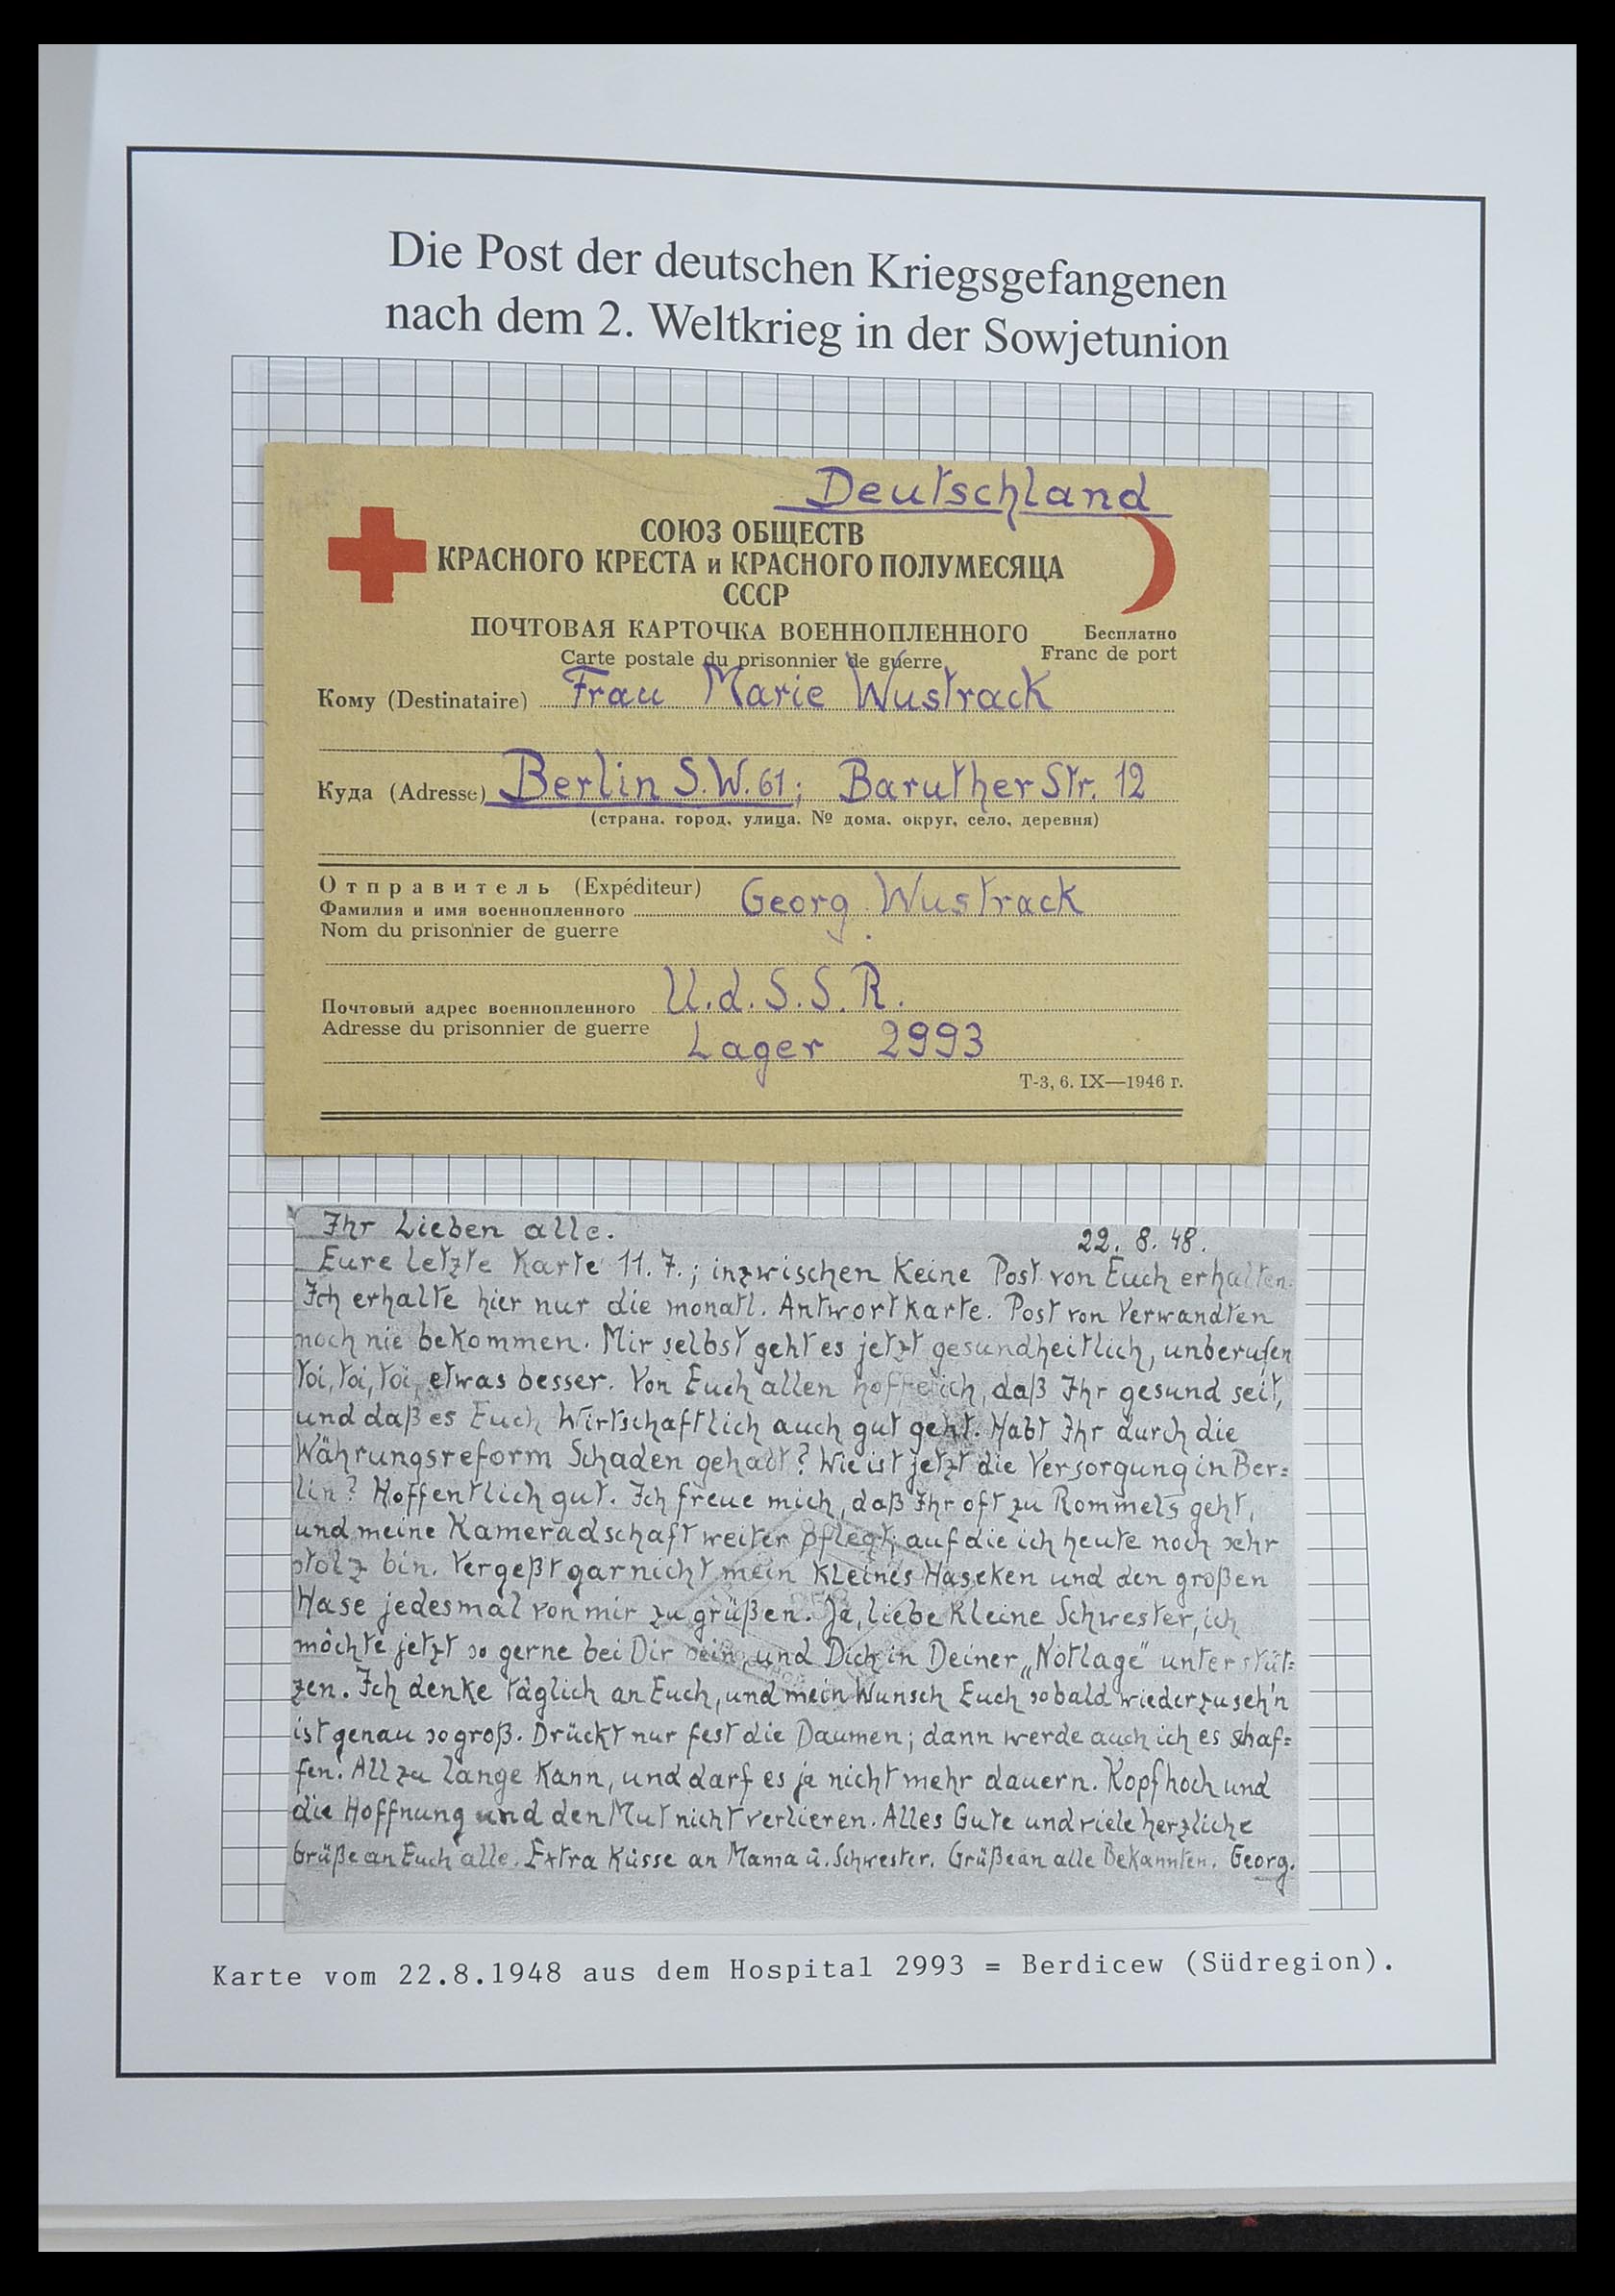 Die Post der deutschen Kriegsgefangenen
nach dem 2. Weltkrieg in der Sowjetunion
Deutschland
СОЮЗ ОБЩЕСТВ
КРАСНОГО КРЕСТА и КРАСНОГО ПОЛУМЕСЯЦА
СССР
ПОЧТОВАЯ КАРТОЧКА ВОЕННОПЛЕННОГО
Бесплатно
Carte postale du prisonnier de guerre
Franc de port
Кому (Destinataire) Frau Marie Wustrack
Куда (Adresse) Berlin S.W. 61; Baruther Str. 12
(страна, город, улица, № дома, округ, село, деревня)
Отправитель (Expéditeur) Georg Wustrack
Фамилия и имя военнопленного
Nom du prisonnier de guerre
Почтовый адрес военнопленного U.d.S.S.R.
Adresse du prisonnier de guerre Lager 2993
Т-3, 6. IX—1946 г.
Ihr Lieben alle. 22. 8. 48.
Eure letzte Karte 11. 7.; inzwischen keine Post von Euch erhalten.
Ich erhalte hier nur die monatl. Antwortkarte. Post von Verwandten
noch nie bekommen. Mir selbst geht es jetzt gesundheitlich, unberufen
toi, toi, toi, etwas besser. Von Euch allen hoffe ich, daß Ihr gesund seit,
und daß es Euch Wirtschaftlich auch gut geht. Habt Ihr durch die
Währungsreform Schaden gehabt? Wie ist jetzt die Versorgung in Ber=
lin? Hoffentlich gut. Ich freue mich, daß Ihr oft zu Rommels geht,
und meine Kameradschaft weiter pflegt; auf die ich heute noch sehr
stolz bin. Vergeßt gar nicht mein kleines Haseken und den großen
Hase jedesmal von mir zu grüßen. Ja, liebe kleine Schwester, ich
möchte jetzt so gerne bei Dir sein, und Dich in Deiner „Notlage" unterstüt=
zen. Ich denke täglich an Euch, und mein Wunsch Euch sobald wiederzuseh'n
ist genau so groß. Drückt nur fest die Daumen; dann werde auch ich es schaf=
fen. All zu lange kann, und darf es ja nicht mehr dauern. Kopf hoch und
die Hoffnung und den Mut nicht verlieren. Alles Gute und viele herzliche
Grüße an Euch alle. Extra Küsse an Mama u. Schwester. Grüße an alle Bekannten. Georg.
Karte vom 22.8.1948 aus dem Hospital 2993 = Berdicew (Südregion).